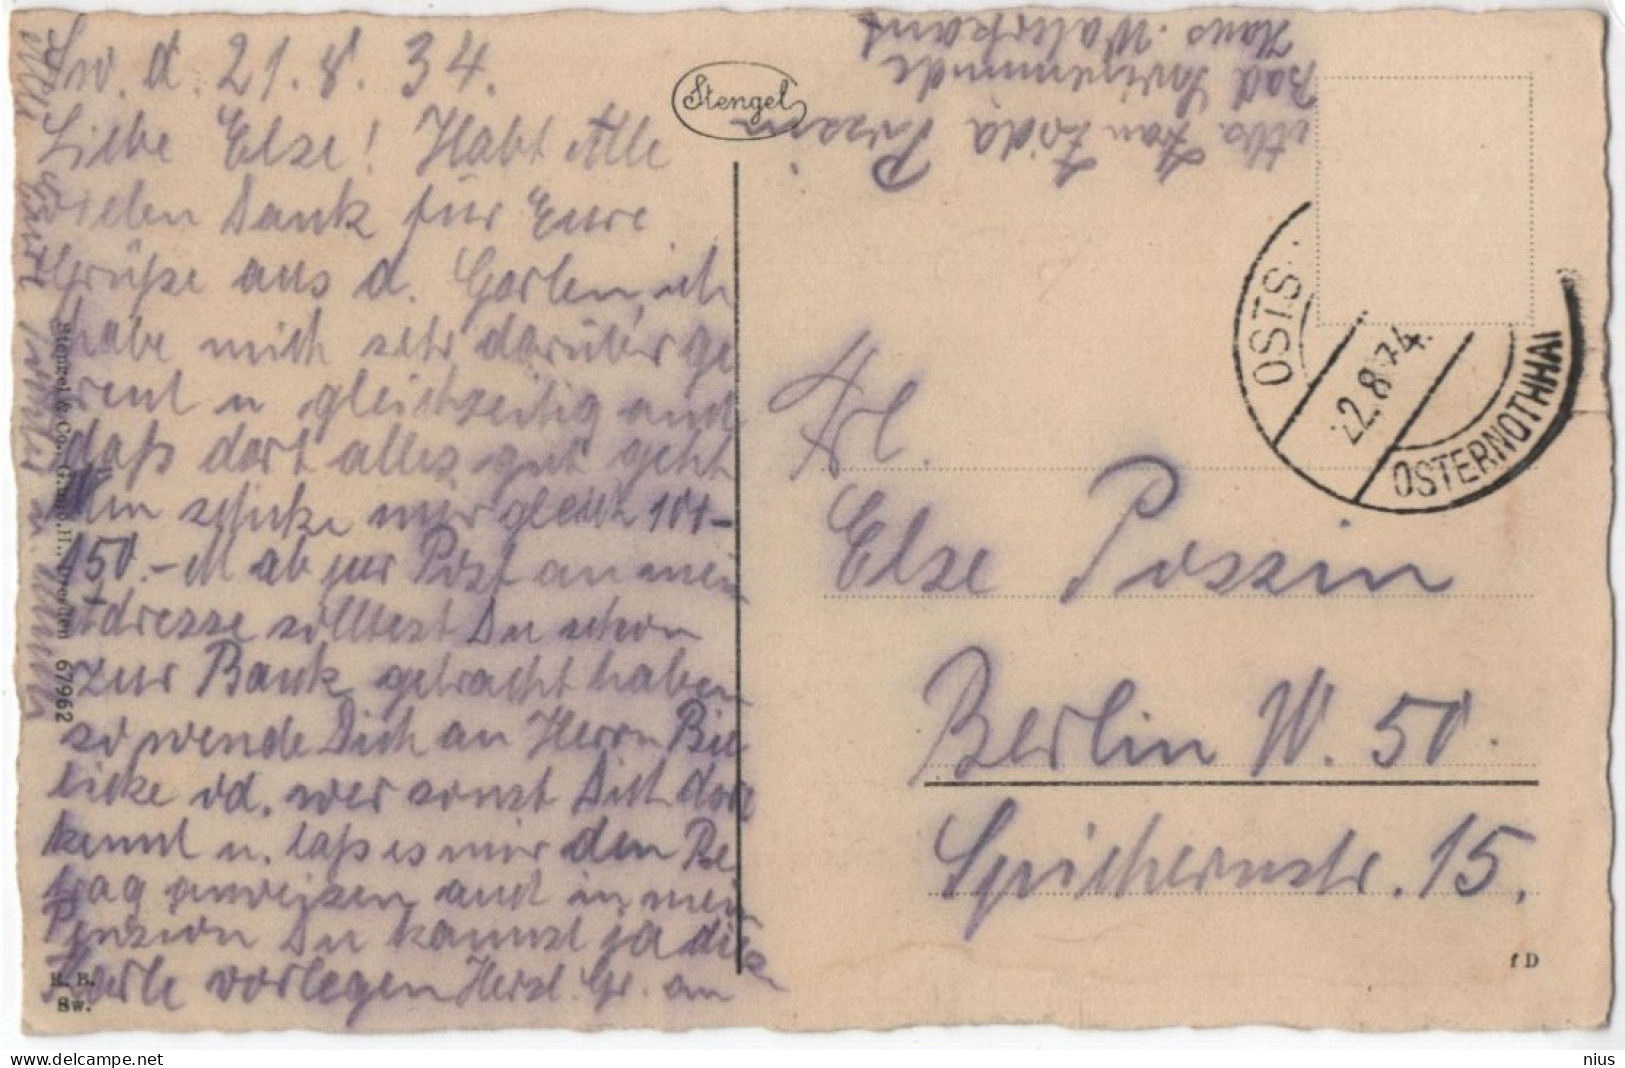 Sw. d. 21.8.34.
Liebe Else! Habt Alle
vielen Dank für Eure
Grüße aus d. Garten, ich
habe mich sehr darüber ge
freut u gleichzeitig auch
daß dort alles gut geht
schicke mir gleich 100-
150.- M ab zur Post an mein
Adresse solltest Du schon
zur Bank gebracht haben
so wende Dich an Herrn Bie
licke od. wer sonst Dich dort
kennt u. laß es mir den Be
trag anweisen auch in mein
Pension Du kannst ja die
Karte vorlegen Herzl. Gr. an
Alle Eure
Stengel
Abs. Frau Frida Possin
Bad Swinemünde
Haus Waterkant
OSTS.
22.8.34.
OSTERNOTHHA
Frl.
Else Possin
Berlin W. 50.
Spichernstr. 15.
Stengel & Co., G.m.b.H., Dresden 67962
R. B.
Sw.
f D
delcampe.net
nius